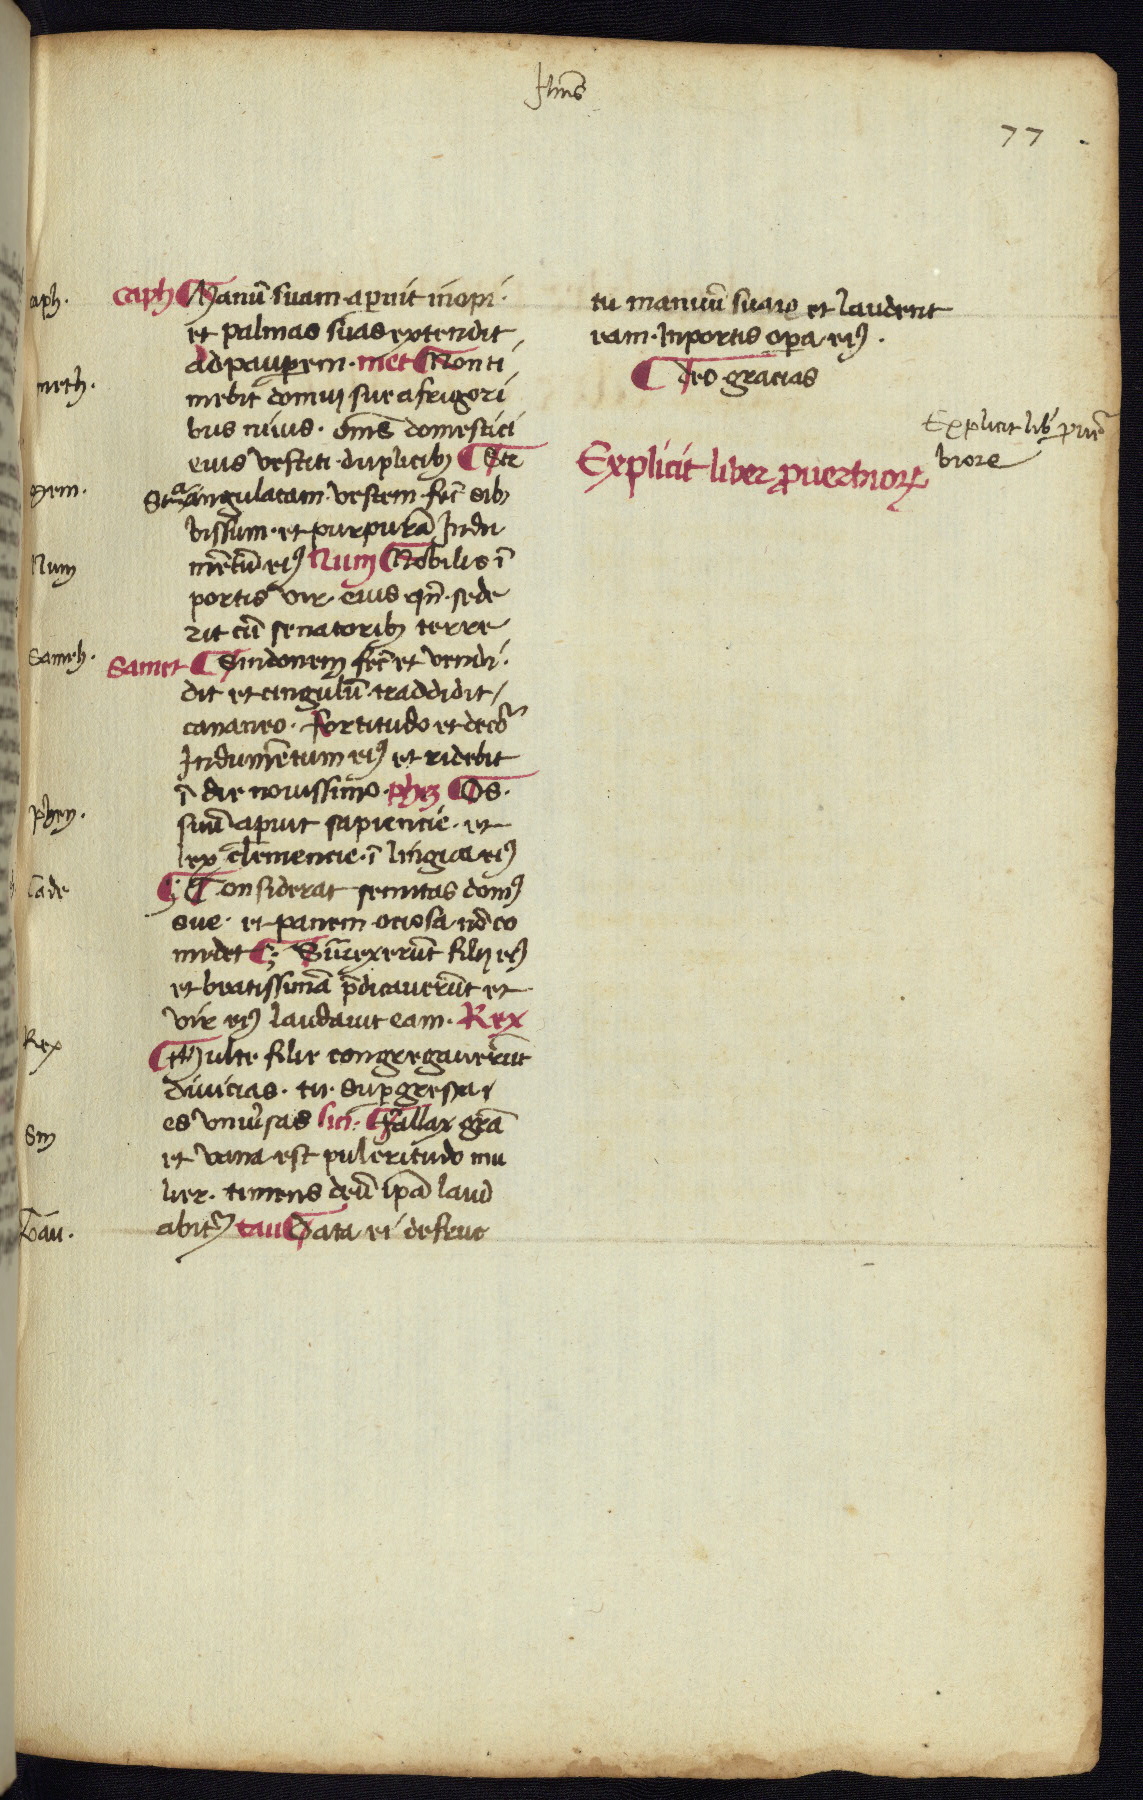 Jhūs
77
caph ¶ Manū suam aperuit inopi·
et palmas suas extendit
ad pauperem· met ¶ Non ti
mebit domui sue a frigori
bus niuis· oms̄ domestici
eius vestiti duplicibꝫ ¶ Str
Straangulatam· vestem· fec̄ sibi
bissum· et purpurā Indu
mētū eiꝰ Num ¶ Nobilis ī
portis vir eius qn̄ sede
rit cū senatoribꝫ terre
Samet ¶ Sindonem fec̄ et vendi·
dit et cingulū traddidit
cananeo· fortitudo et decor
Indumētum eiꝰ et ridebit
ī die nouissimo· phe ¶ Os·
suū aperuit sapiencie· et
lex clemencie· ī lingua eiꝰ
¶ Considerat semitas domꝰ
sue· et panem ociosa nō co
medet ¶ Surrexerūt filij eiꝰ
et beatissimā p̄dicauerūt et
vir eiꝰ laudauit eam· Rex
¶ Multe filie congregauerūt
diuicias· tu· supergressa
es vniuersas sin· ¶ Fallax grā
et vana est pulcritudo mu
lier· timens deū ipā laud
abit᷑ tau ¶ Data ei de fruc
tu manuū suarꝝ et laudent
eam· In portis opera eiꝰ·
¶ deo gracias
Explicit liber prouerbiorꝝ
Explicit lib̄ prouer
biore
caph·
meth·
mem·
Num
Sameh·
phey·
Sade
Rex
Sin
Tau·